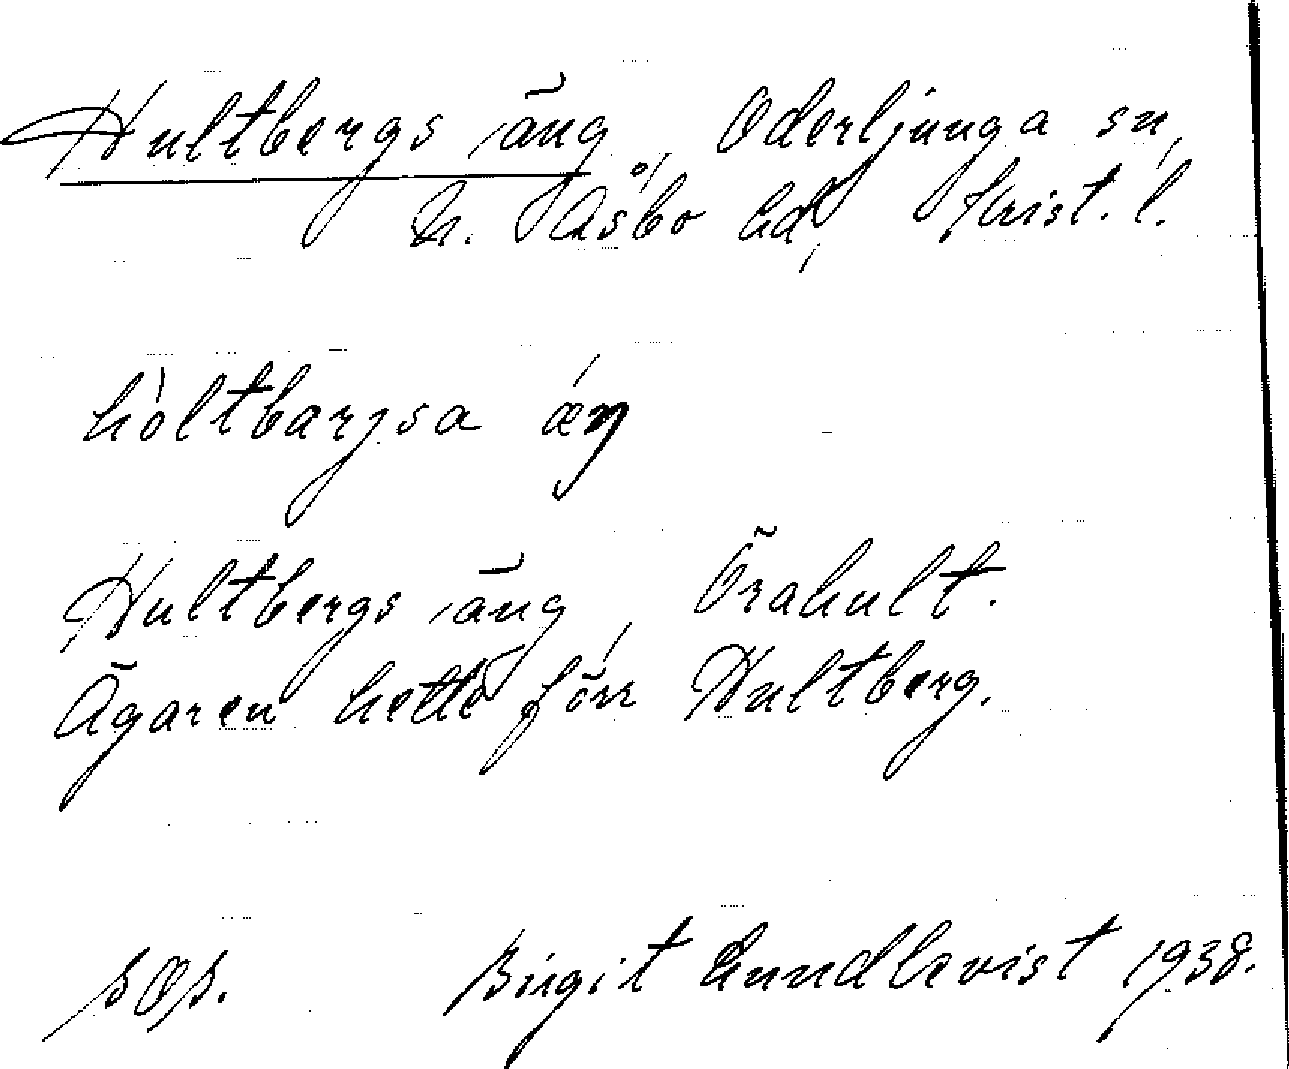 Hultbergs äng, Oderljunga sn,
N. Åsbo hd, Krist. l.
hòltbarjsa áŋ
Hultbergs äng, Örahult.
Ägaren hette förr Hultberg.
Birgit Lundkvist 1938.